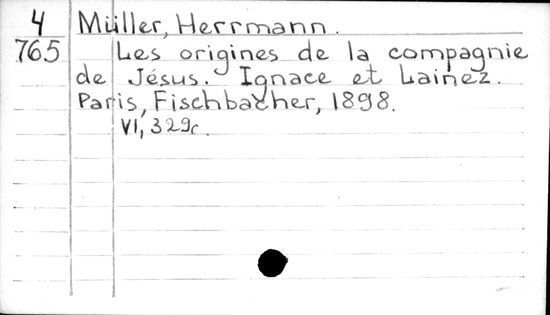 4 Müller, Herrmann.
765 Les origines de la compagnie
de Jésus. Ignace et Lainez.
Paris, Fischbacher, 1898.
VI, 329c.